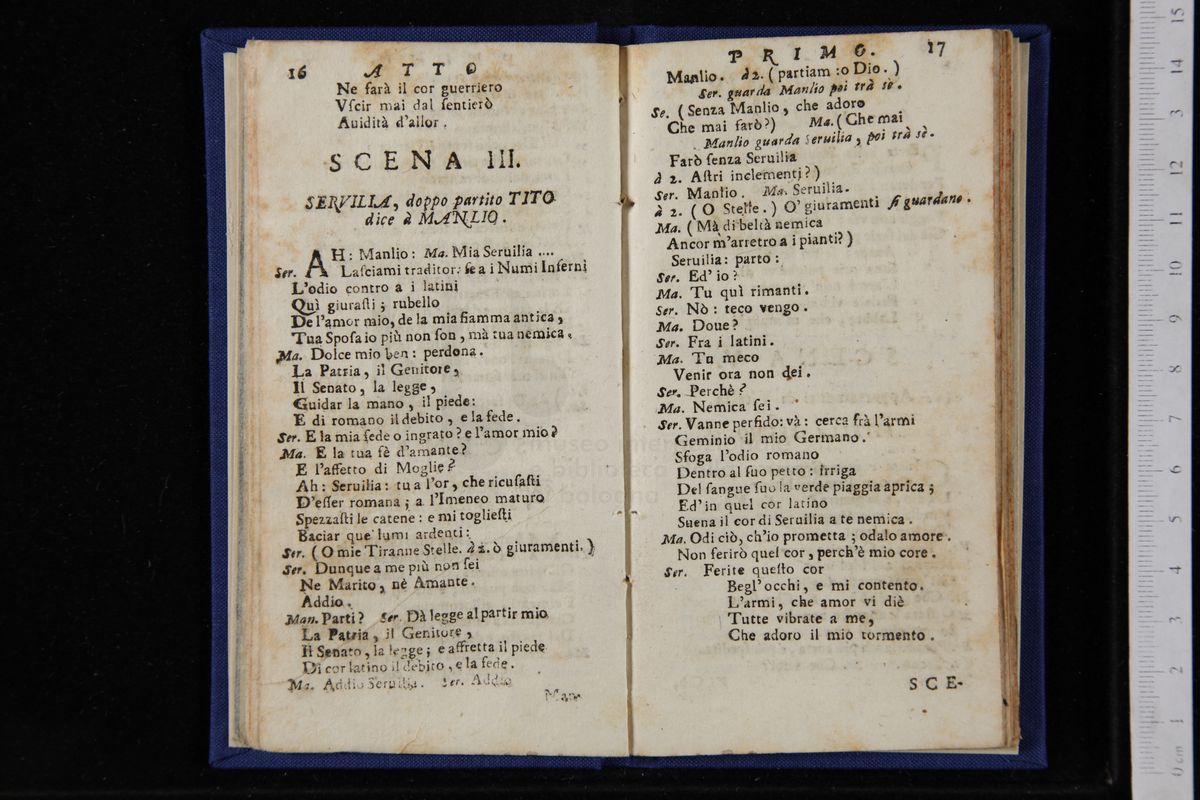 16 ATTO
Ne farà il cor guerriero
Vſcir mai dal ſentierò
Auidità d'allor.
SCENA III.
SERVILIA, doppo partito TITO
dice à MANLIO.
AH: Manlio: Ma. Mia Seruilia ....
Ser. Laſciami traditor: ſe a i Numi Inferni
L'odio contro a i latini
Quì giuraſti; rubello
De l'amor mio, de la mia fiamma antica,
Tua Spoſa io più non ſon, mà tua nemica.
Ma. Dolce mio ben: perdona.
La Patria, il Genitore,
Il Senato, la legge,
Guidar la mano, il piede:
E di romano il debito, e la fede.
Ser. E la mia fede o ingrato? e l'amor mio?
Ma. E la tua fè d'amante?
E l'affetto di Moglie?
Ah: Seruilia: tu a l'or, che ricuſaſti
D'eſſer romana; a l'Imeneo maturo
Spezzaſti le catene: e mi toglieſti
Baciar que' lumi ardenti:
Ser. (O mie Tiranne Stelle. à 2. ò giuramenti.)
Ser. Dunque a me più non ſei
Ne Marito, nè Amante.
Addio.
Man. Parti? Ser. Dà legge al partir mio
La Patria, il Genitore,
Il Senato, la legge; e affretta il piede
Di cor latino il debito, e la fede.
Ma. Addio Seruilia. Ser. Addio
Man-
PRIMO. 17
Manlio. à 2. (partiam :o Dio.)
Ser. guarda Manlio poi trà sè.
Se. (Senza Manlio, che adoro
Che mai farò?) Ma. (Che mai
Manlio guarda Seruilia, poi trà sè.
Farò ſenza Seruilia
à 2. Aſtri inclementi?)
Ser. Manlio. Ma. Seruilia.
à 2. (O Stelle.) O' giuramenti ſi guardano.
Ma. (Mà di beltà nemica
Ancor m'arretro a i pianti?)
Seruilia: parto:
Ser. Ed' io?
Ma. Tu quì rimanti.
Ser. Nò: teco vengo.
Ma. Doue?
Ser. Fra i latini.
Ma. Tu meco
Venir ora non dei.
Ser. Perchè?
Ma. Nemica ſei.
Ser. Vanne perfido: và: cerca frà l'armi
Geminio il mio Germano.
Sfoga l'odio romano
Dentro al ſuo petto: irriga
Del ſangue ſuo la verde piaggia aprica;
Ed' in quel cor latino
Suena il cor di Seruilia a te nemica.
Ma. Odi ciò, ch'io prometta; odalo amore.
Non ferirò quel cor, perch'è mio core.
Ser. Ferite queſto cor
Begl'occhi, e mi contento.
L'armi, che amor vi diè
Tutte vibrate a me,
Che adoro il mio tormento.
SCE-